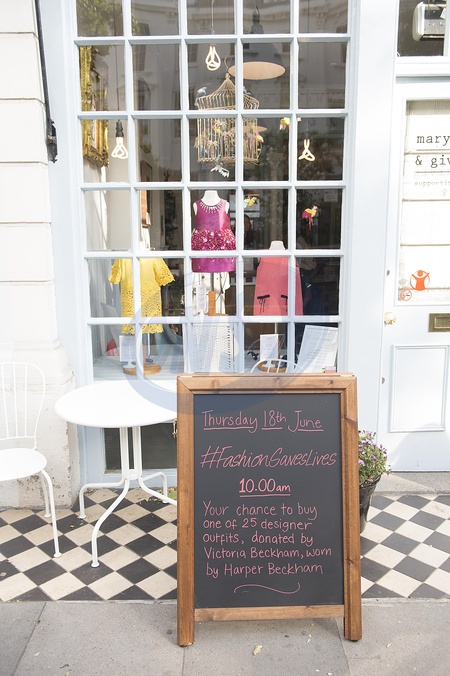 mary
& giv
Thursday 18th June
#FashionSavesLives
10.00am
Your chance to buy
one of 25 designer
outfits, donated by
Victoria Beckham, worn
by Harper Beckham